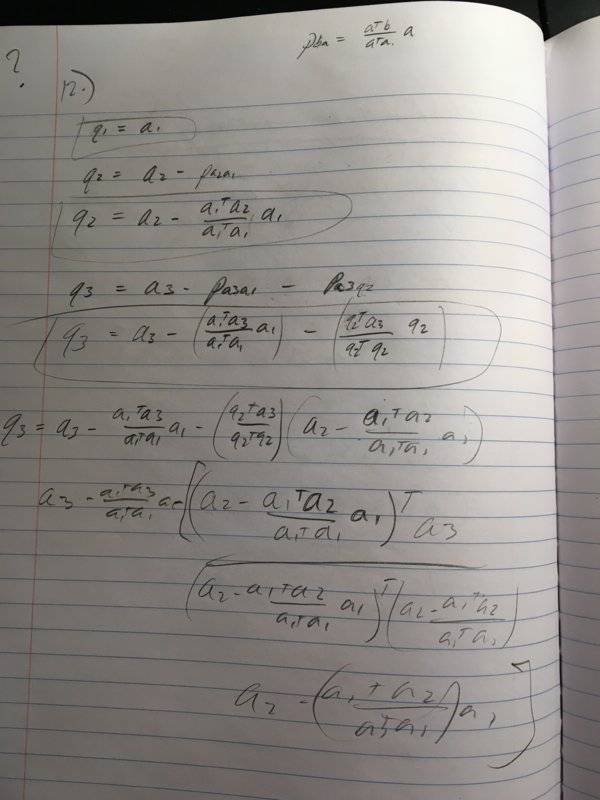 P_ba = a^T b / a^T a₁ a
?
12.)
q₁ = a₁
q₂ = a₂ - P_a₂a₁
q₂ = a₂ - a₁^T a₂ / a₁^T a₁ a₁
q₃ = a₃ - P_a₃a₁ - P_a₃q₂
q₃ = a₃ - (a₁^T a₃ / a₁^T a₁ a₁) - (q₂^T a₃ / q₂^T q₂ q₂)
q₃ = a₃ - a₁^T a₃ / a₁^T a₁ a₁ - (q₂^T a₃ / q₂^T q₂) (a₂ - a₁^T a₂ / a₁^T a₁ a₁)
a₃ - a₁^T a₃ / a₁^T a₁ a₁ - [(a₂ - a₁^T a₂ / a₁^T a₁ a₁)^T a₃
(a₂ - a₁^T a₂ / a₁^T a₁ a₁)^T (a₂ - a₁^T a₂ / a₁^T a₁)
a₂ - (a₁^T a₂ / a₁^T a₁) a₁]